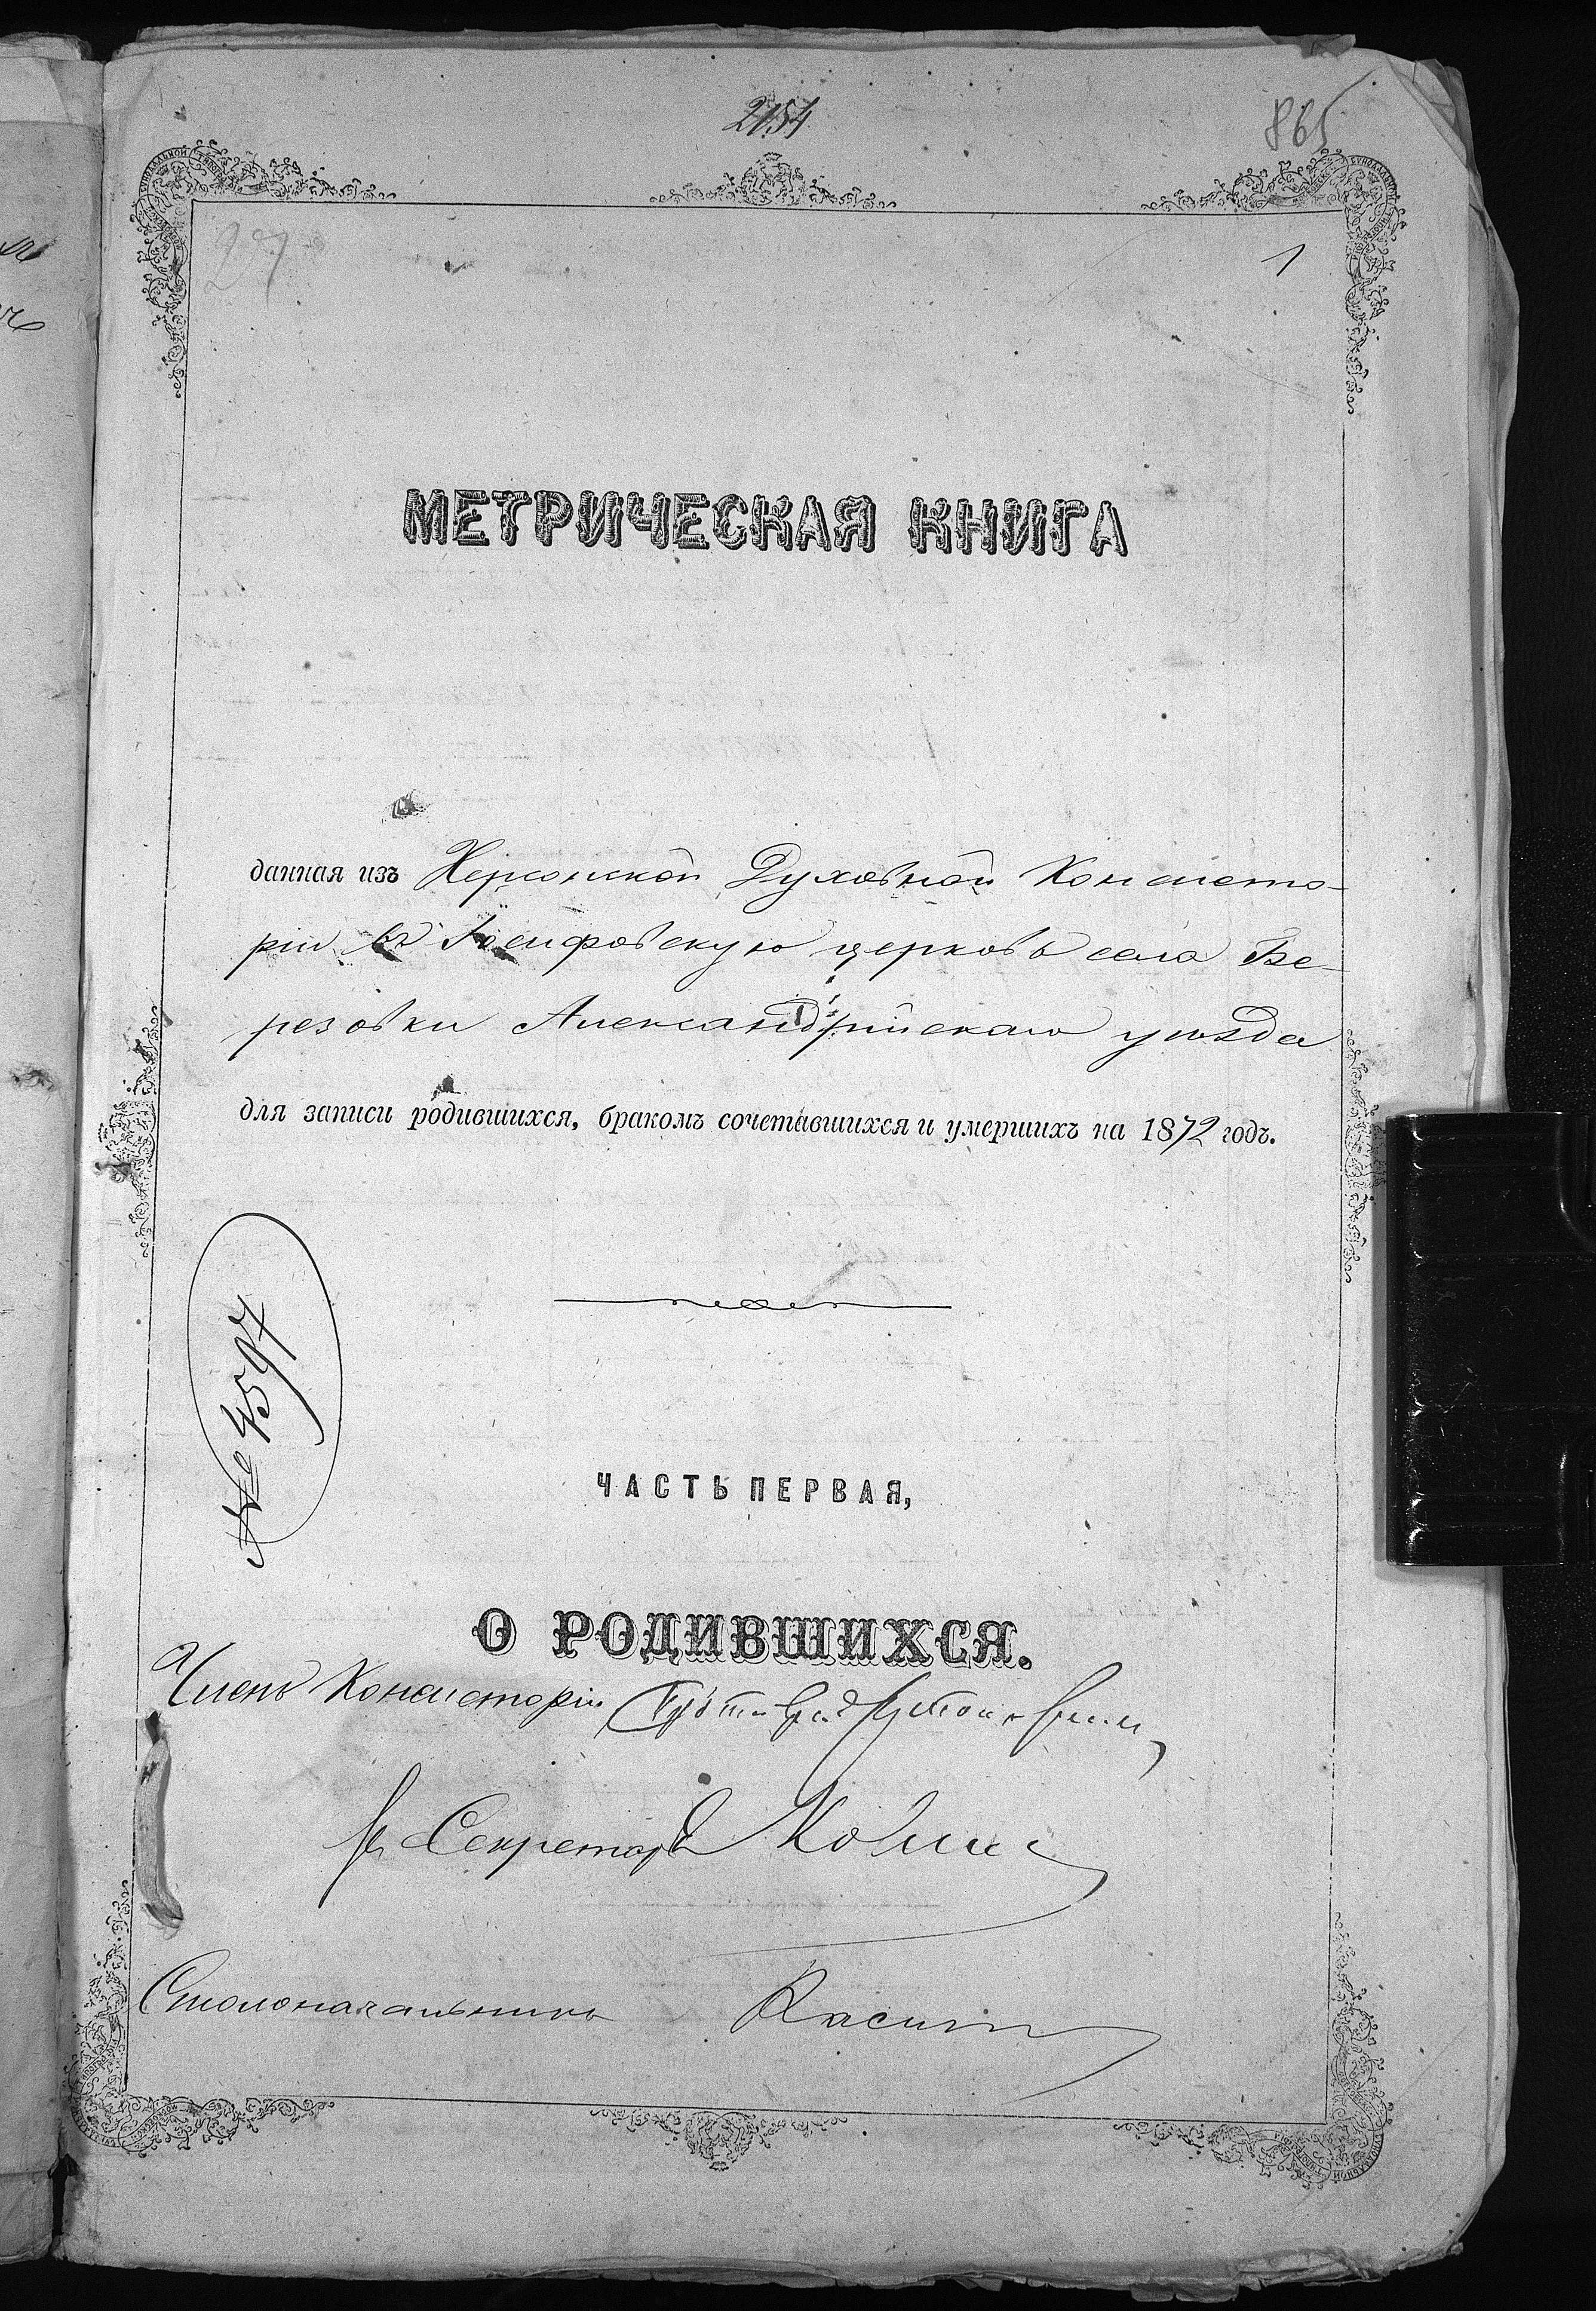 2154
865
27
1
МЕТРИЧЕСКАЯ КНИГА
данная изъ Херсонской Духовной Консисто-
ріи въ Іосифовскую церковь села Бе-
резовки Александрійскаго уѣзда
для записи родившихся, бракомъ сочетавшихся и умершихъ на 1872 годъ.
№ 4597
ЧАСТЬ ПЕРВАЯ,
О РОДИВШИХСЯ.
Членъ Консисторіи
Секретарь
Столоначальникъ